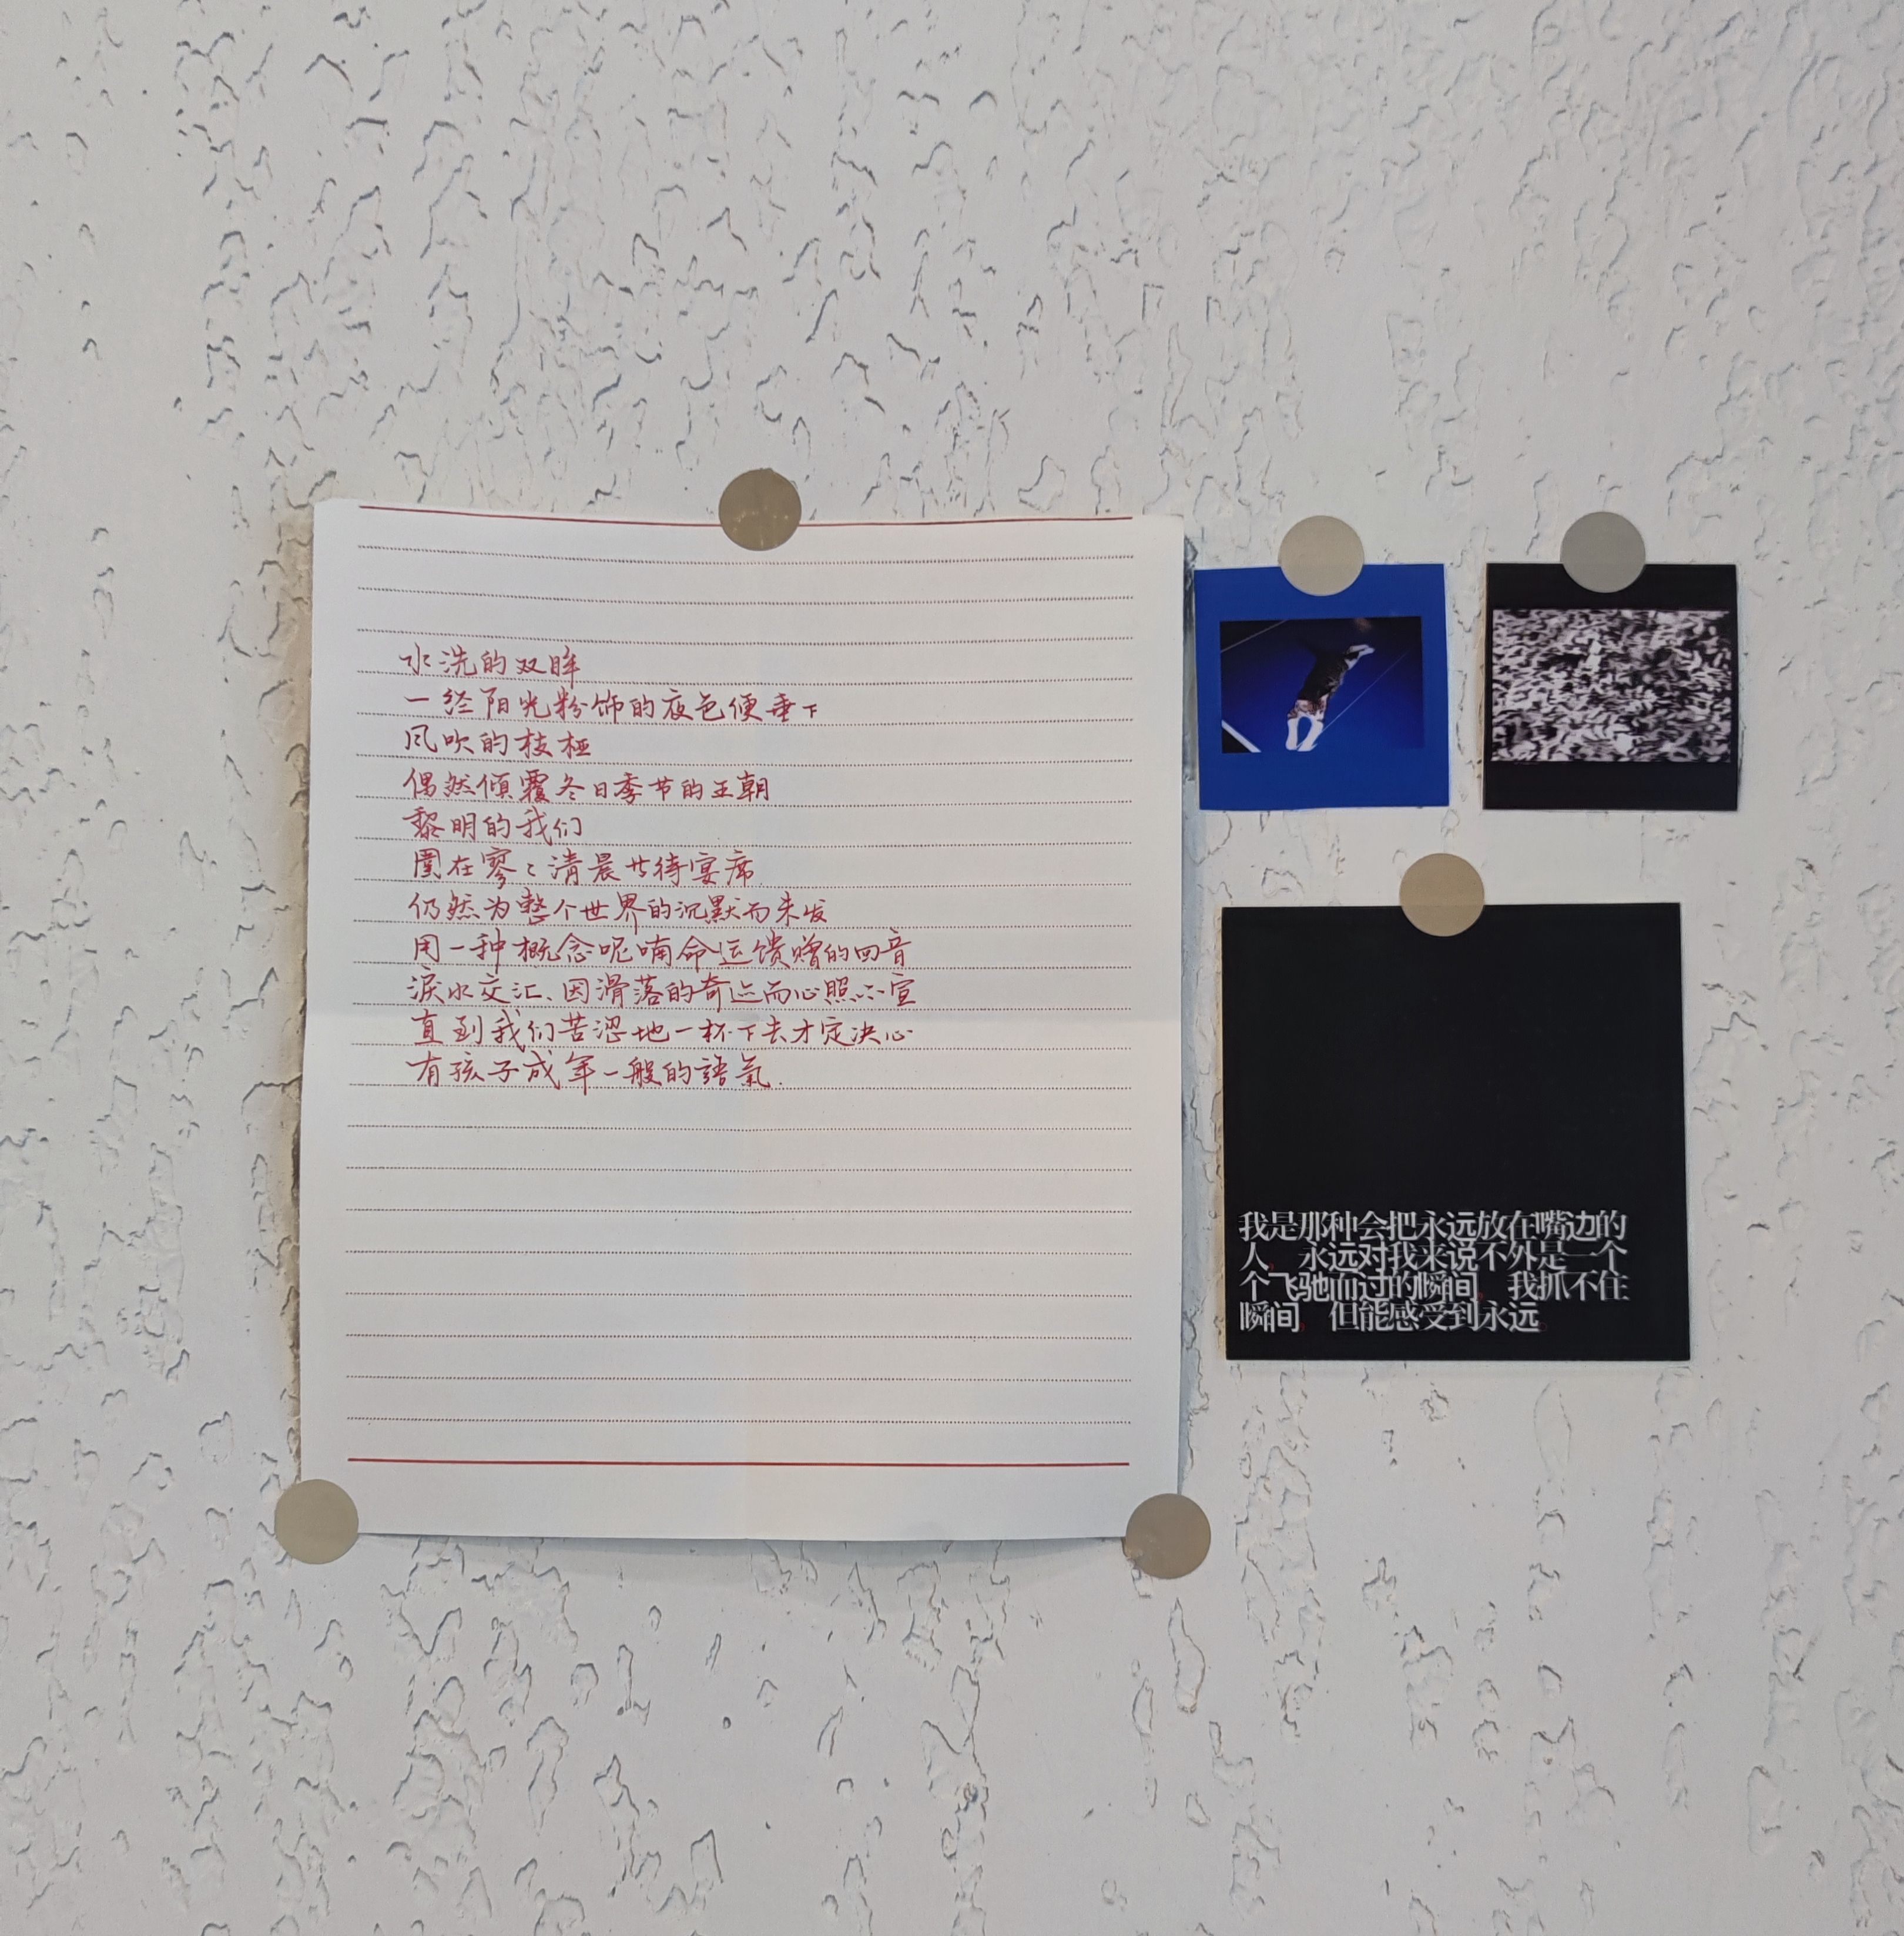 水洗的双眸
一经阳光粉饰的夜色便垂下
风吹的枝桠
偶然倾覆冬日季节的王朝
黎明的我们
圍在寥々清晨共待宴席
仍然为整个世界的沉默而未发
用一种概念呢喃命运馈赠的回音
淚水交汇、因滑落的奇迹而心照不宣
直到我们苦涩地一杯下去才定决心
有孩子成年一般的語氣.
我是那种会把永远放在嘴边的
人。永远对我来说不外是一个
个飞驰而过的瞬间。我抓不住
瞬间，但能感受到永远。